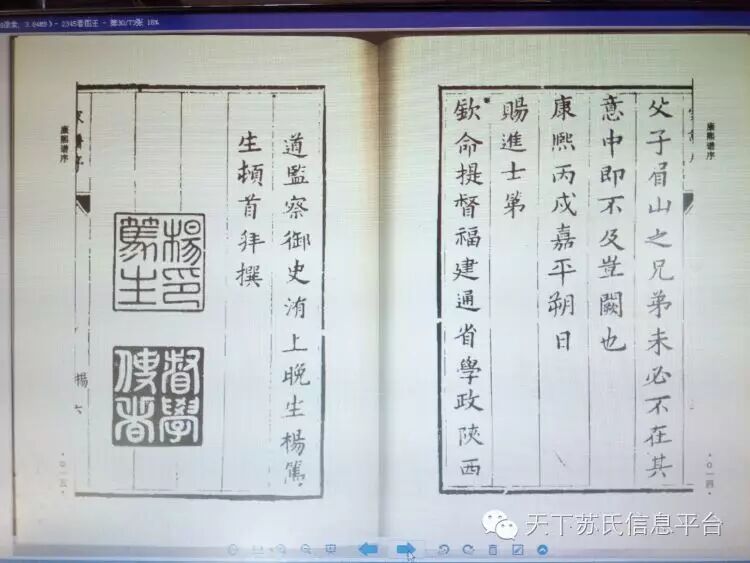 2345看图王 - 第30/73张 18%
康熙谱序
父子眉山之兄弟未必不在其
意中即不及豈闕也
康熙丙戌嘉平朔日
賜進士第
欽命提督福建通省學政陝西
〇一四
康熙谱序
道監察御史洧上晚生楊篤
生頓首拜撰
楊印篤生
督學使者
楊 六
〇一五
天下苏氏信息平台